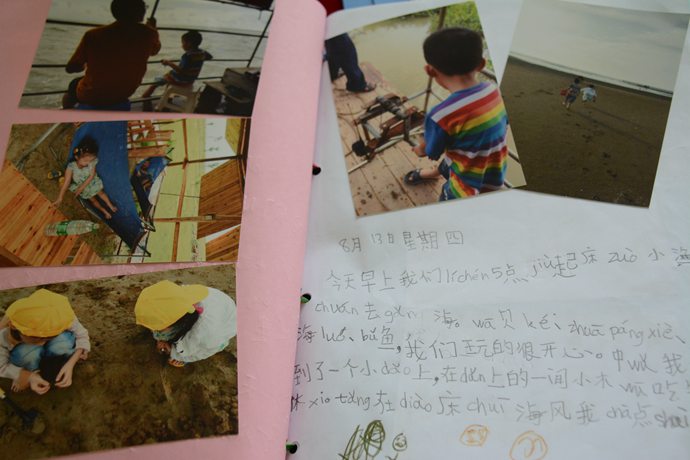 8月13日星期四
今天早上我们líchén5点jiù起床zuò小海
chuán去gǎn海。wā贝ké、zhuā páng xiè、
海luó、bǔ鱼,我们玩的很开心。中wǔ我
到了一个小dǎo上,在dǎo上的一间小木wū吃
休xi tǎng在diào床chuī海风我chà点shuì